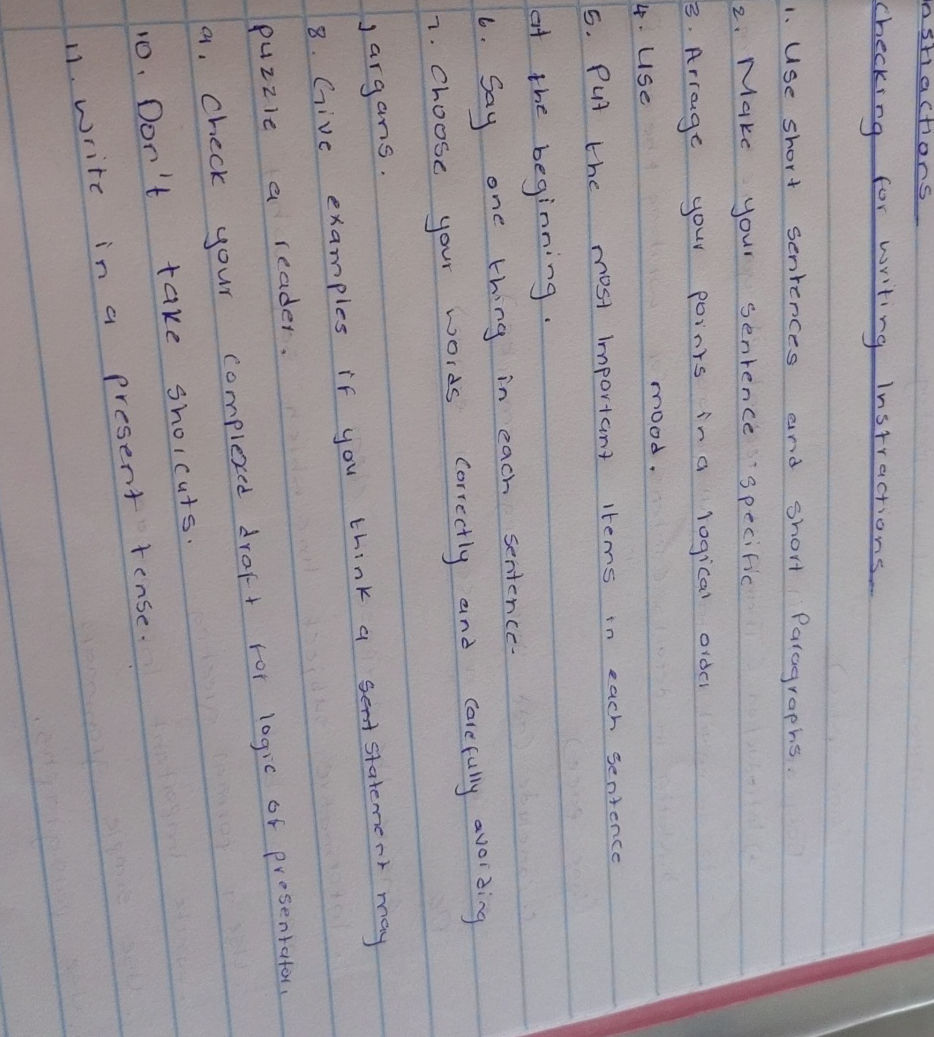 nstractions
checking for writing Instractions
1. Use short sentences and short Paragraphs.
2. Make your sentence specific
3. Arrage your points in a logical order
4. Use mood.
5. Put the most Important items in each sentence
at the beginning.
6. Say one thing in each sentence.
7. Choose your words correctly and carefully avoiding
jargans.
8. Give examples if you think a statement may
puzzle a reader.
9. Check your complexed draft for logic of presentator.
10. Don't take shorcuts.
11. Write in a present tense.